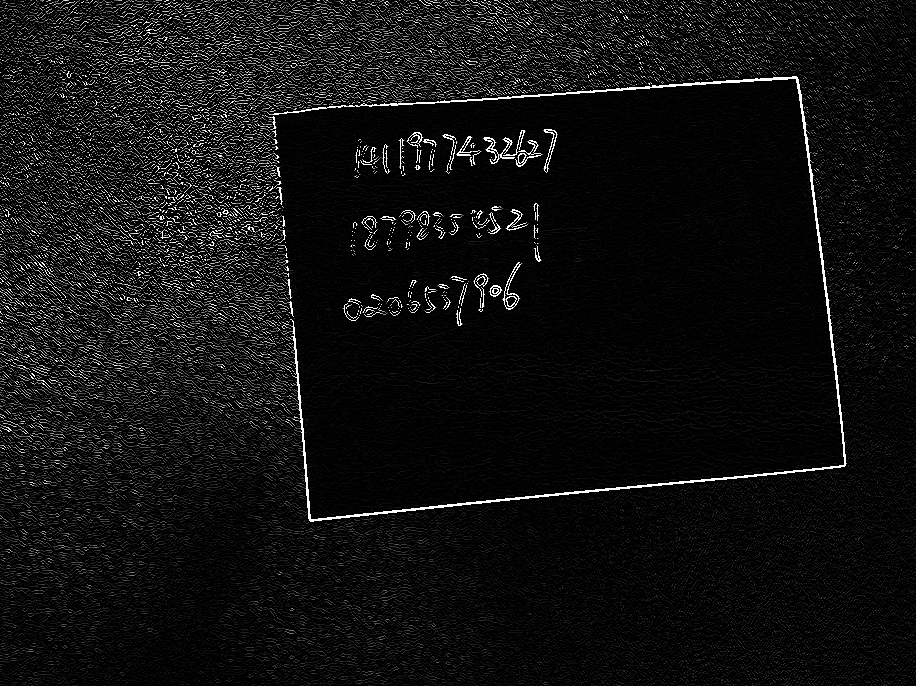 1411977432627
18798354521
0206537906